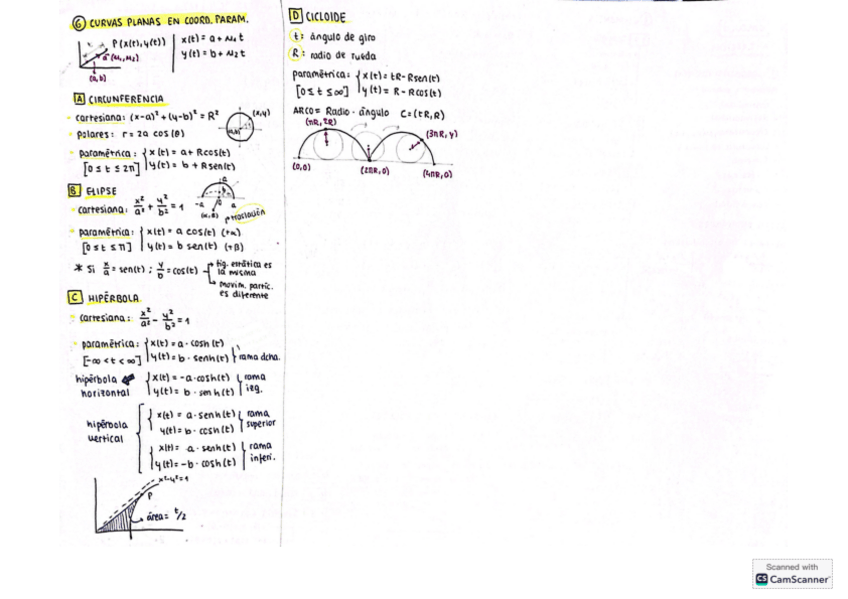 6 CURVAS PLANAS EN COORD. PARAM.
P(x(t), y(t))
(a,b)
x(t) = a + u₁t
y(t) = b + u₂t
A CIRCUNFERENCIA
cartesiana: (x-a)² + (y-b)² = R²
(x,y)
polares: r = 2a cos(θ)
paramétrica: x(t) = a + Rcos(t)
[0 ≤ t ≤ 2π] y(t) = b + Rsen(t)
B ELIPSE
cartesiana: x²/a² + y²/b² = 1
-a a
traslación
paramétrica: x(t) = a cos(t) (+α)
[0 ≤ t ≤ π] y(t) = b sen(t) (+β)
* Si x/a = sen(t) ; y/b = cos(t)
fig. estática es
la misma
movim. partíc.
es diferente
C HIPÉRBOLA
cartesiana: x²/a² - y²/b² = 1
paramétrica: x(t) = a · cosh(t)
[-∞ < t < ∞] y(t) = b · senh(t) rama dcha.
hipérbola horizontal
x(t) = -a · cosh(t)
y(t) = b · senh(t)
rama izq.
hipérbola vertical
x(t) = a · senh(t)
y(t) = b · cosh(t)
rama superior
x(t) = a · senh(t)
y(t) = -b · cosh(t)
rama inferi.
x²-y²=1
P
área = t/2
D CICLOIDE
t: ángulo de giro
R: radio de rueda
paramétrica: x(t) = tR - Rsen(t)
[0 ≤ t ≤ ∞] y(t) = R - Rcos(t)
ARCO = Radio · ángulo C = (tR, R)
(πR, 2R)
(3πR, y)
(0,0)
(2πR, 0)
(4πR, 0)
Scanned with
CS CamScanner